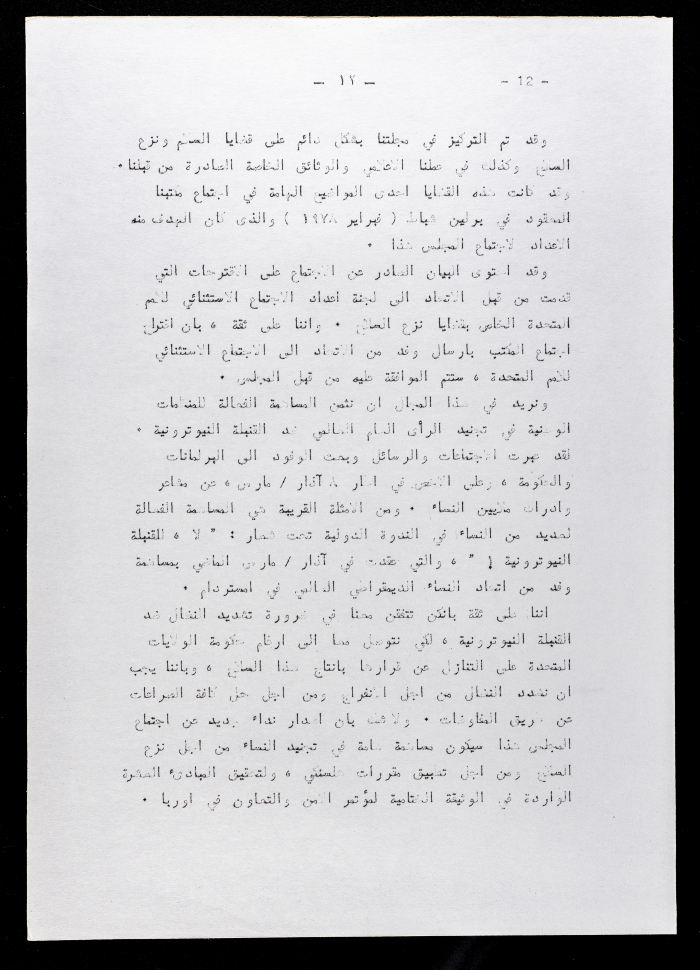 - ١٢ -
- 12 -
وقد تم التركيز في مجلتنا بشكل دائم على قضايا السلم ونزع
السلاح وكذلك في عملنا الاعلامي والوثائق الخاصة الصادرة من قبلنا •
وقد كانت هذه القضايا احدى المواضيع الهامة في اجتماع مكتبنا
المعقود في برلين شباط ( فبراير ١٩٧٨ ) والذى كان الهدف منه
الاعداد لاجتماع المجلس هذا •
وقد احتوى البيان الصادر عن الاجتماع على الاقترحات التي
قدمت من قبل الاتحاد الى لجنة اعداد الاجتماع الاستثنائي للامم
المتحدة الخاص بقضايا نزع السلاح • واننا على ثقة ، بان اقتراح
اجتماع المكتب بارسال وفد من الاتحاد الى الاجتماع الاستثنائي
للامم المتحدة ، ستتم الموافقة عليه من قبل المجلس •
ونريد في هذا المجال ان نثمن المساهمة الفعالة للمنظمات
الوطنية في تجنيد الرأى العام العالمي ضد القنبلة النيوترونية •
لقد عبرت الاجتماعات والرسائل وبعث الوفود الى البرلمانات
والحكومة ، وعلى الاخص في اطار ٨ آذار / مارس ، عن مشاعر
وادراك ملايين النساء • ومن الامثلة القريبة هي المساهمة الفعالة
لعديد من النساء في الندوة الدولية تحت شعار : " لا ، للقنبلة
النيوترونية ! " ، والتي عقدت في آذار / مارس الماضي بمساهمة
وفد من اتحاد النساء الديمقراطي العالمي في امستردام •
اننا على ثقة بانكن تتفقن معنا في ضرورة تشديد النضال ضد
القنبلة النيوترونية ، لكي نتوصل معا الى ارغام حكومة الولايات
المتحدة على التنازل عن قرارها بانتاج هذا السلاح ، وباننا يجب
ان نشدد النضال من اجل الانفراج ومن اجل حل كافة الصراعات
عن طريق المفاوضات • ولا شك بان اصدار نداء جديد عن اجتماع
المجلس هذا سيكون مساهمة هامة في تجنيد النساء من اجل نزع
السلاح ومن اجل تطبيق مقررات هلسنكي ، ولتحقيق المبادئ العشرة
الواردة في الوثيقة الختامية لمؤتمر الامن والتعاون في اوربا •